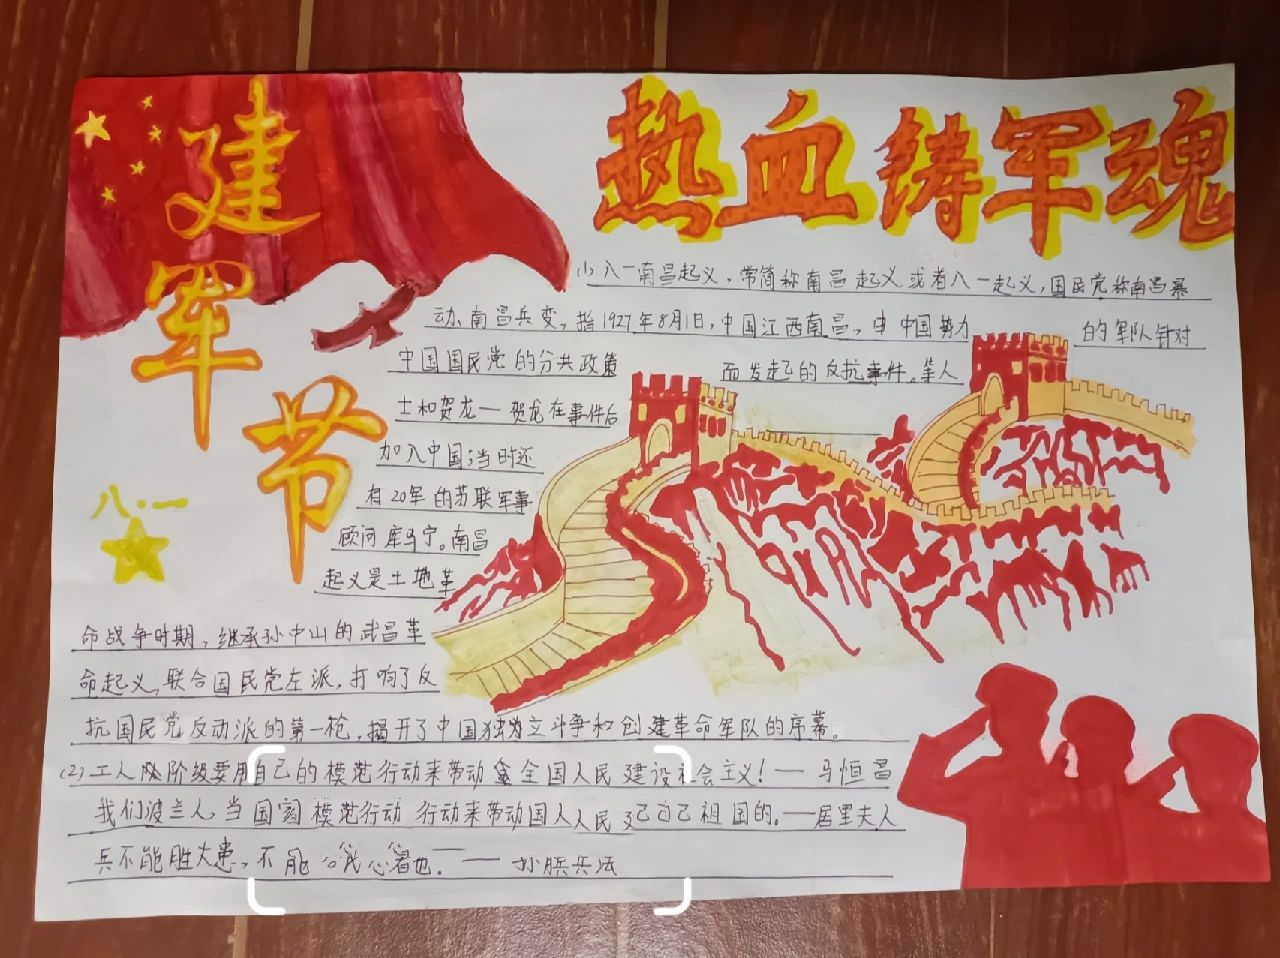 建军节
热血铸军魂
八·一
(1)八一南昌起义,常简称南昌起义或者八一起义,国民党称南昌暴
动、南昌兵变,指1927年8月1日,中国江西南昌,由中国势力的军队针对
中国国民党的分共政策而发起的反抗事件。等人
士和贺龙一贺龙在事件后
加入中国;当时还
有20军的苏联军事
顾问库马宁。南昌
起义是土地革
命战争时期,继承孙中山的武昌革
命起义,联合国民党左派,打响了反
抗国民党反动派的第一枪,揭开了中国独立斗争和创建革命军队的序幕。
(2)工人阶级要用自己的模范行动来带动全国人民建设社会主义!——马恒昌
我们波兰人,当国家模范行动行动来带动国人人民 自己祖国的。——居里夫人
兵不能胜大患,不能 民心者也。——孙膑兵法